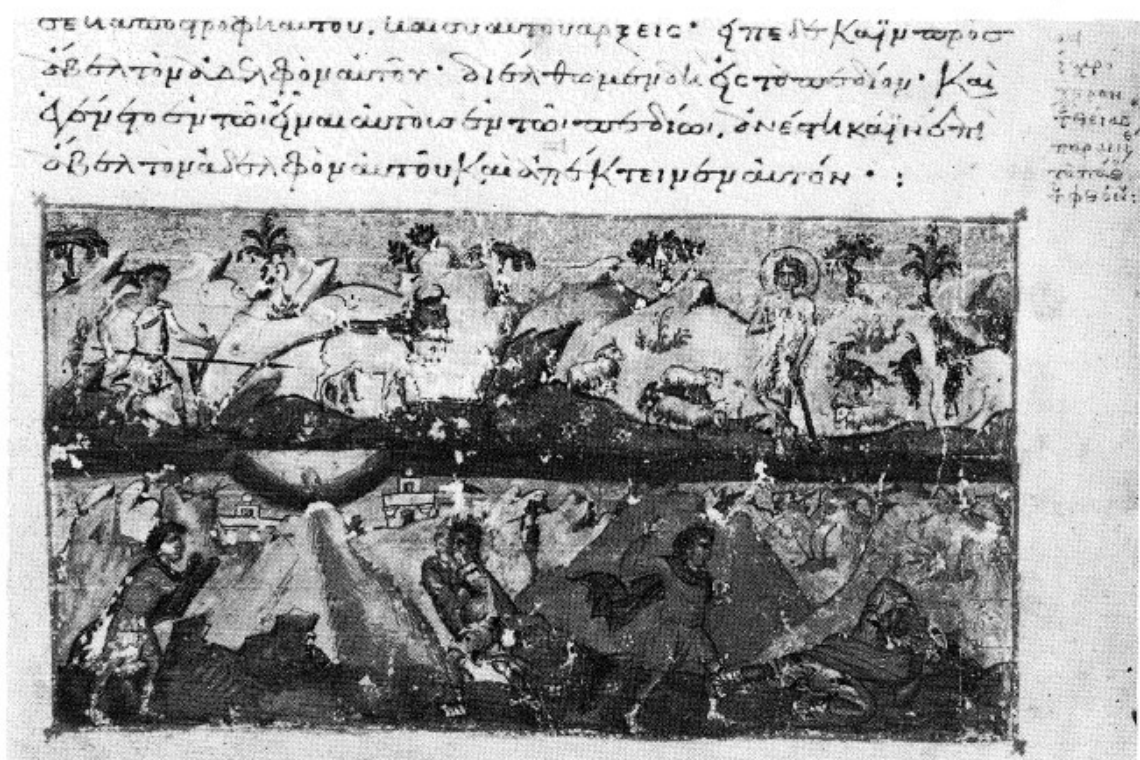 σε ἡ ἀποστροφὴ αὐτοῦ, καὶ σὺ αὐτοῦ ἄρξεις· εἶπε δὲ Κάϊν πρὸς
ἄβελ τὸν ἀδελφὸν αὐτοῦ· διέλθωμεν δὴ εἰς τὸ πεδίον· Καὶ
ἐγένετο ἐν τῶι εἶναι αὐτοὺς ἐν τῶι πεδίωι, ἀνέστη κάϊν ἐπὶ
ἄβελ τὸν ἀδελφὸν αὐτοῦ Καὶ ἀπέκτεινεν αὐτόν· :